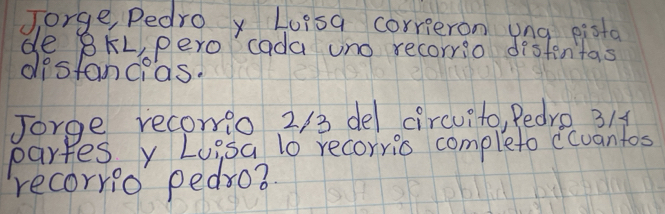 Jorge, Pedro y Luisa corrieron una pista
de 8 KL, pero cada uno recorrio distintas
distancias.
Jorge recorrio 2/3 del circuito, Pedro 3/4
partes y Luisa lo recorrio completo ¿cuantos
recorrio pedro?